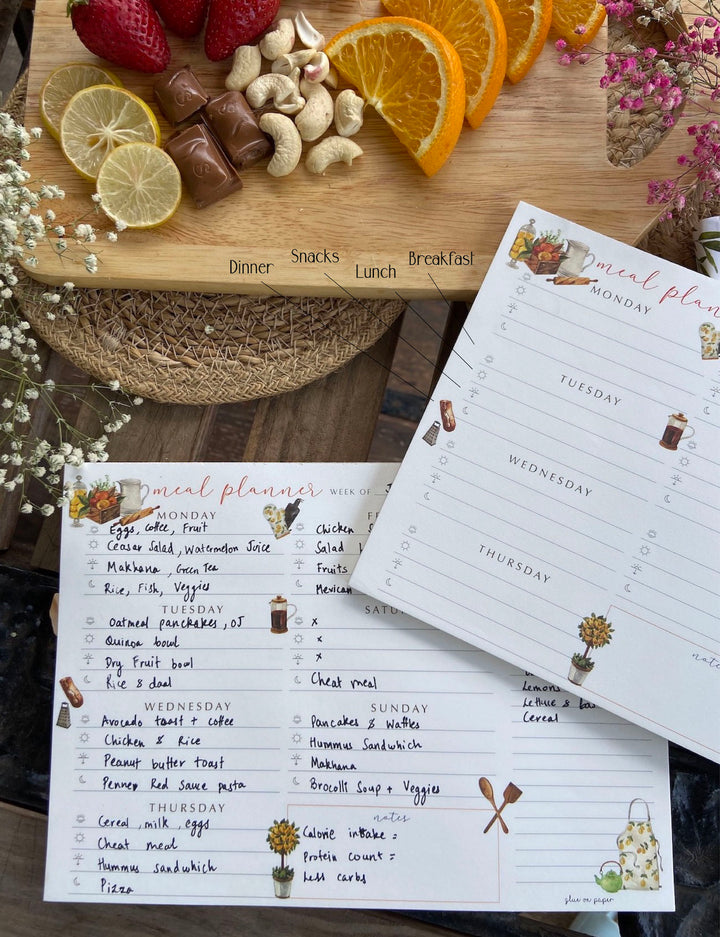 Dinner
Snacks
Lunch
Breakfast
meal plan
MONDAY
TUESDAY
WEDNESDAY
THURSDAY
note
meal planner WEEK OF
MONDAY
Eggs, coffee, Fruit
Ceasar Salad, Watermelon Juice
Makhana, Green Tea
Rice, Fish, Veggies
TUESDAY
Oatmeal panckakes, OJ
Quinoa bowl
Dry Fruit bowl
Rice & daal
WEDNESDAY
Avocado toast + coffee
Chicken & Rice
Peanut butter toast
Penney Red Sauce pasta
THURSDAY
Cereal, milk, eggs
Cheat meal
Hummus sandwhich
Pizza
Chicken
Salad
Fruits
Mexican
SATU
x
x
x
Cheat meal
SUNDAY
Pancakes & Waffles
Hummus Sandwhich
Makhana
Brocolli Soup + Veggies
notes
Calorie intake =
Protein count =
Less carbs
Lemons
Lettuce &
Cereal
glue on paper